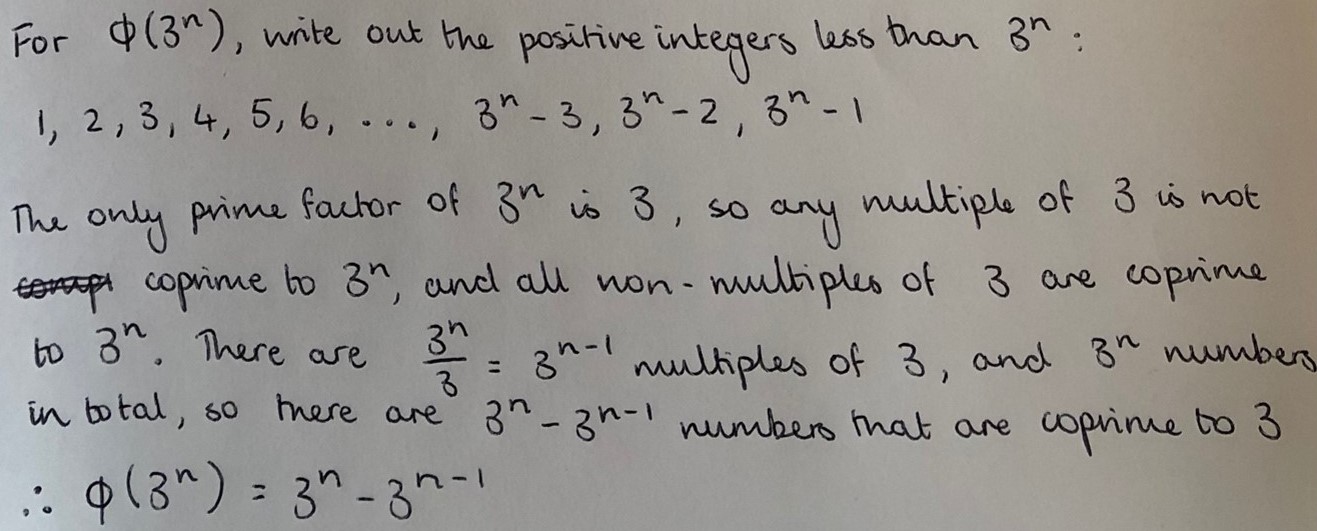 For φ(3ⁿ), write out the positive integers less than 3ⁿ :
1, 2, 3, 4, 5, 6, ..., 3ⁿ - 3, 3ⁿ - 2, 3ⁿ - 1
The only prime factor of 3ⁿ is 3, so any multiple of 3 is not
coprime to 3ⁿ, and all non-multiples of 3 are coprime
to 3ⁿ. There are 3ⁿ/3 = 3ⁿ⁻¹ multiples of 3, and 3ⁿ numbers
in total, so there are 3ⁿ - 3ⁿ⁻¹ numbers that are coprime to 3
∴ φ(3ⁿ) = 3ⁿ - 3ⁿ⁻¹